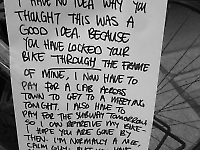 I HAVE NO IDEA WHY YOU
THOUGHT THIS WAS A
GOOD IDEA. BECAUSE
YOU HAVE LOCKED YOUR
BIKE THROUGH THE FRAME
OF MINE, I NOW HAVE TO
PAY FOR A CAB ACROSS
TOWN TO GET TO A MEETING
TONIGHT. I ALSO HAVE TO
PAY FOR THE SUBWAY TOMORROW
SO I CAN RETRIEVE MY BIKE-
I HOPE YOU ARE GONE BY
THEN. I'M NORMALLY A NICE,
CALM GUY, BUT